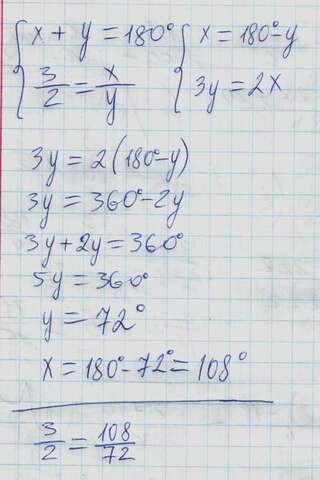 { x + y = 180° { x = 180° - y
{ 3/2 = x/y { 3y = 2x
3y = 2(180° - y)
3y = 360° - 2y
3y + 2y = 360°
5y = 360°
y = 72°
x = 180° - 72° = 108°
3/2 = 108/72